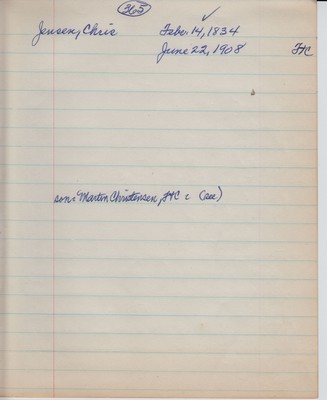 365
Jensen, Chris Febr. 14, 1834
June 22, 1908 FHC
son: Martin Christensen, FHC : (see)